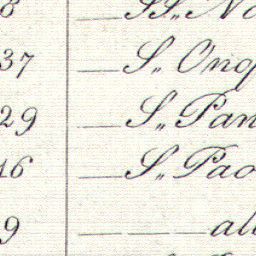 8 — SS„ No
37 — S„ Onof
29 — S„ Pan
16 — S„ Pao
9 — — — all